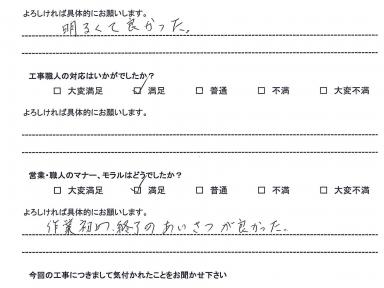 よろしければ具体的にお願いします。
明るくて良かった。
工事職人の対応はいかがでしたか?
□ 大変満足 ☑ 満足 □ 普通 □ 不満 □ 大変不満
よろしければ具体的にお願いします。
営業・職人のマナー、モラルはどうでしたか?
□ 大変満足 ☑ 満足 □ 普通 □ 不満 □ 大変不満
よろしければ具体的にお願いします。
作業初め、終了のあいさつが良かった。
今回の工事につきまして気付かれたことをお聞かせ下さい